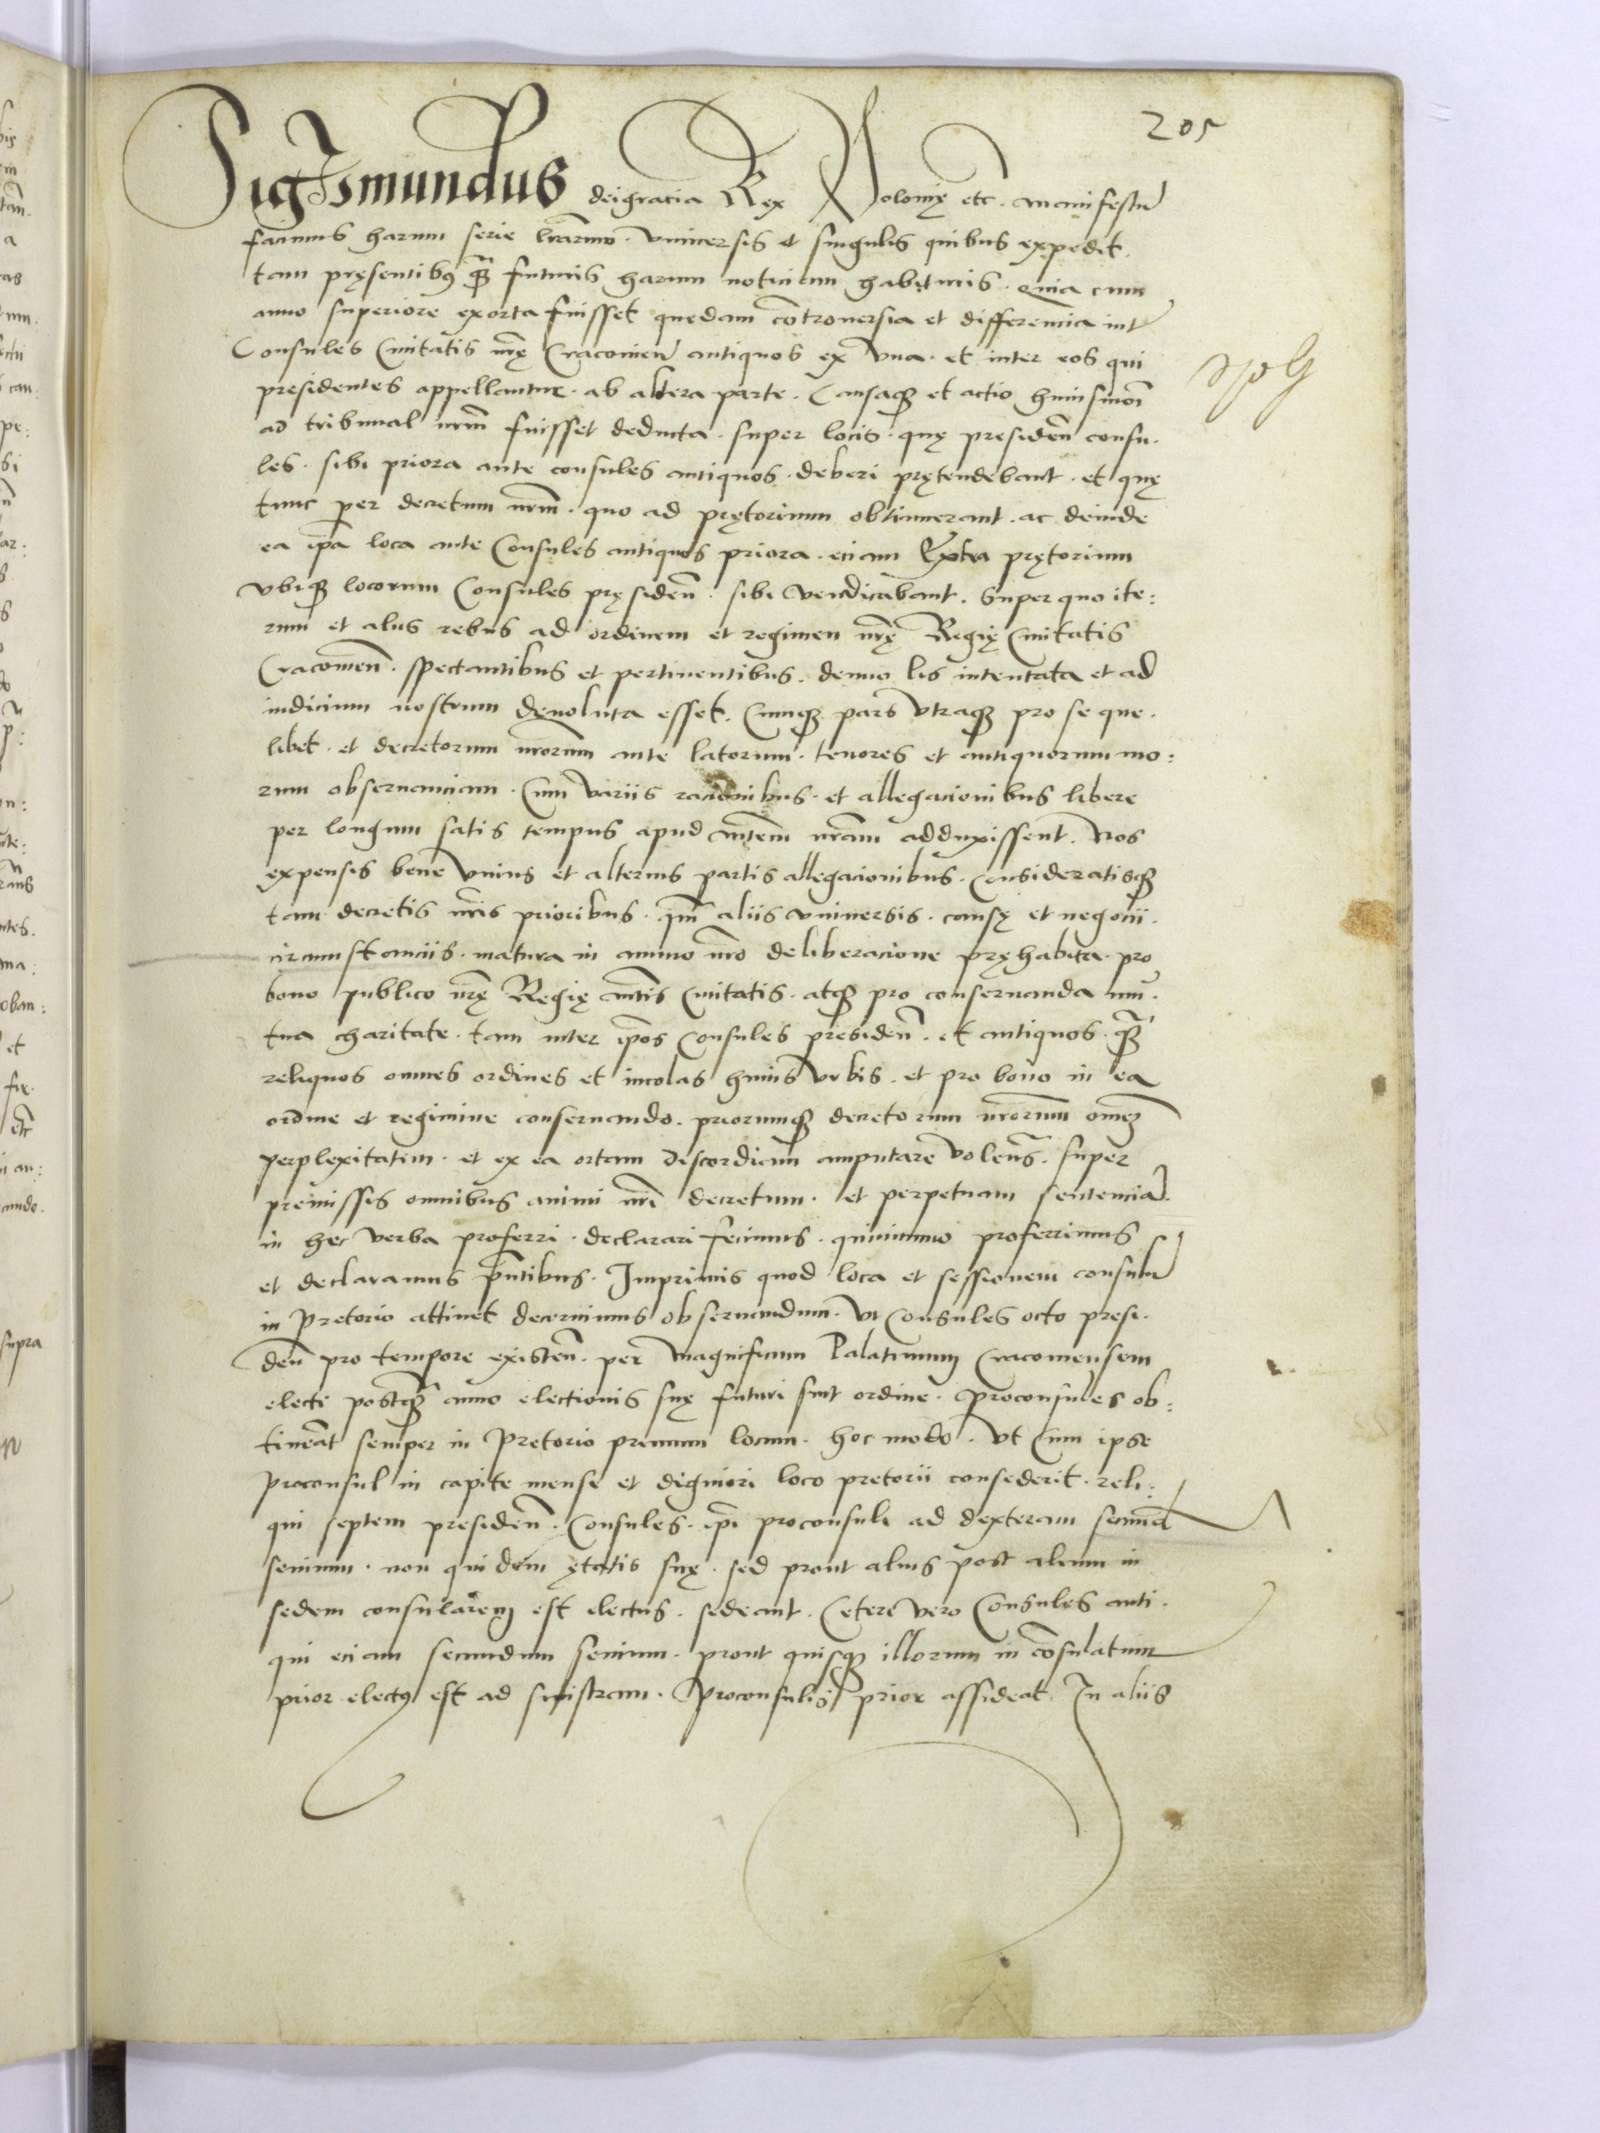 205
Sigismundus dei gracia Rex Polonię etc. manifestū
facimus harum serie lrārum. vniuersis et singulis quibus expedit.
tam pręsentibꝰ q̄ꝫ futuris harum noticiam habituris. Quia cum
anno superiore exorta fuisset quedam cōtrouersia et differencia int̄
Consules Ciuitatis nrę Cracouien̄ antiquos ex vna. et inter eos qui
presidentes appellantur. ab altera parte. Causaqꝫ et actio huiusmōi
ad tribunal nrm̄ fuisset deducta. super locis. quę presiden̄ consu.
les. sibi priora ante consules antiquos. deberi prętendebant. et quę
tunc per decretum nrm̄. quo ad prętorium obtinuerant. ac deinde
ea ip̄a loca ante Consules antiquos priora. eciam Extra prętorium
vbiqꝫ locorum Consules pręsiden̄. sibi vendicabant. Super quo ite:
rum et aliis rebus ad ordinem et regimen nrę Regię Ciuitatis
Cracouien̄. spectantibus et pertinentibus. denuo lis intentata et ad
iudicium nostrum deuoluta esset. Cumqꝫ pars vtraqꝫ pro se que.
libet. et decretorum nrorum ante latorum. tenores et antiquorum mo:
rum obseruanciam. Cum variis racionibus. et allegacionibus libere
per longum satis tempus apud mtem̄ nram̄ adduxissent. Nos
expensis bene vnius et alterius partis allegacionibus. Consideratisqꝫ
tam decretis nris prioribus. qm̄ aliis vniuersis. causę et negocii.
circumstanciis. matura in animo nrō deliberacione pręhabita. pro
bono publico nrę Regię mtis Ciuitatis. atqꝫ pro conseruanda mu.
tua charitate. tam inter ip̄os Consules presiden̄. et antiquos. q̄ꝫ
reliquos omnes ordines et incolas huius vrbis. et pro bono in ea
ordine et regimine conseruando. priorumqꝫ decretorum nrorum omēꝫ
perplexitatem. et ex ea ortam discordiam amputare volen̄s. super
premissis omnibus animi nrī decretum. et perpetuam sentenciā.
in hec verba proferri. declarari fecimus. quinimmo proferrimus
et declaramus p̄ntibus. Imprimis quod loca et sessionem consulū
in Pretorio attinet decernimus obseruandum. vt Consules octo presi.
den̄ pro tempore existen̄. per Magnificum Palatinum Cracouiensem
electi postqꝫ anno electionis suę futuri sint ordine. proconsules ob:
tineāt semper in Pretorio primum locum. hoc modo. Vt Cum ipse
proconsul in capite mense et digniori loco pretorii consederit. reli:
qui septem presiden̄. Consules. ip̄i proconsuli ad dexteram secundū
senium. non quidem ętatis suę. sed prout alius post alium in
sedem consularem est electus. sedeant. Ceteri vero Consules anti.
qui eciam secundum senium. prout quisqꝫ illorum in cōsulatum
prior electꝰ est ad sinistram. Proconsulis prior assideat. In aliis